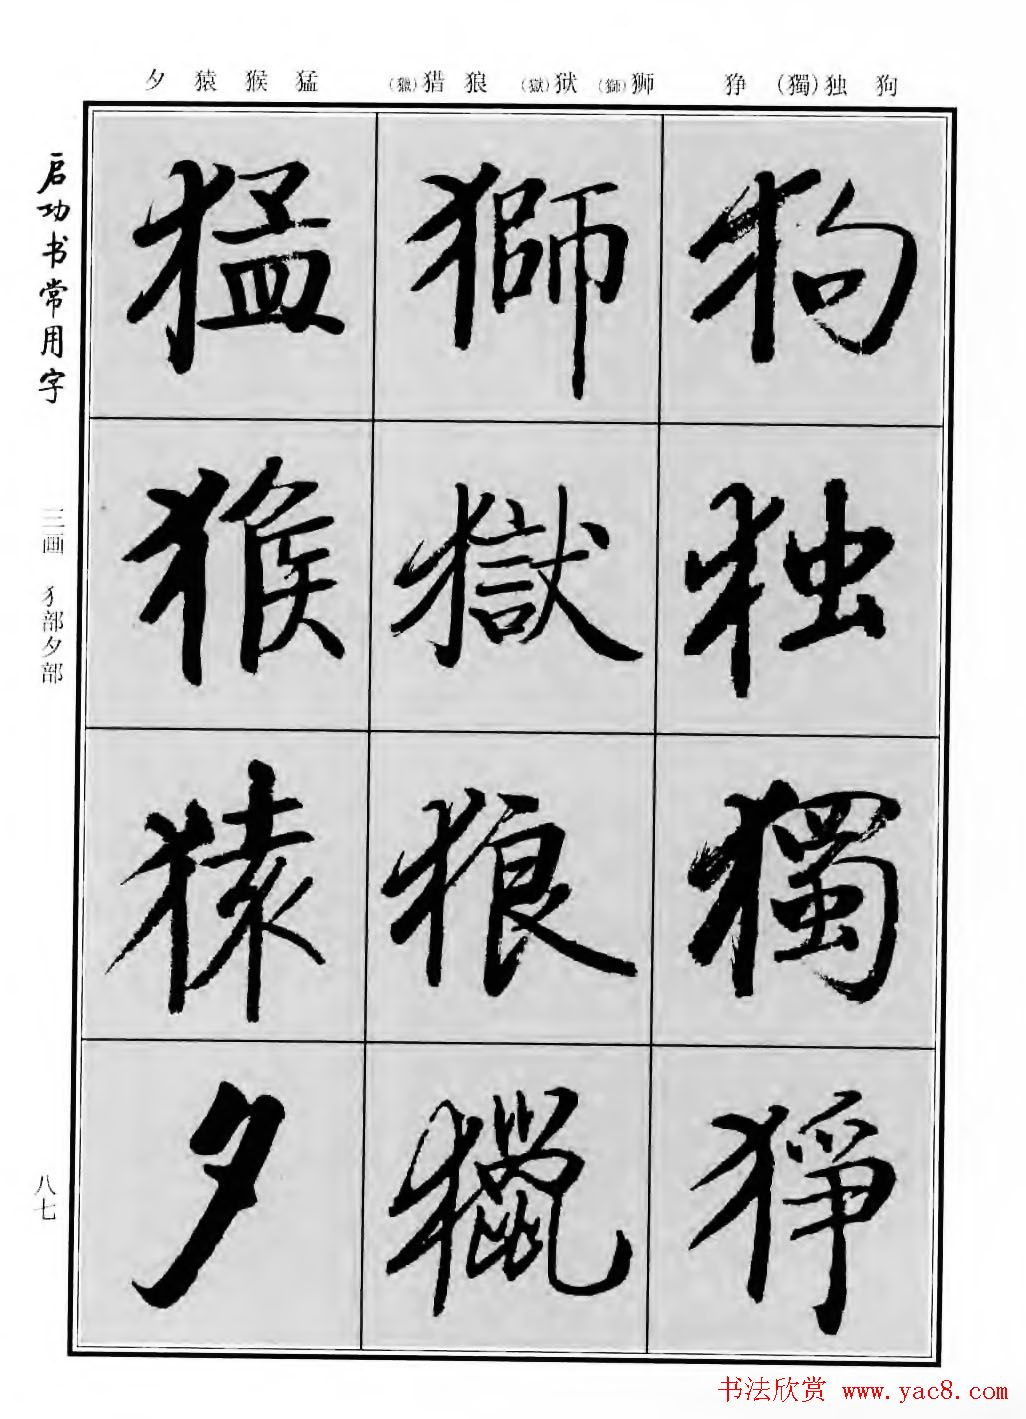 狗 独(獨) 狰
狮(獅) 狱(獄) 狼 猎(獵)
猛 猴 猿 夕
狗
独
獨
猙
獅
獄
狼
獵
猛
猴
猿
夕
启功书常用字
三画 犭部夕部
八七
书法欣赏 www.yac8.com